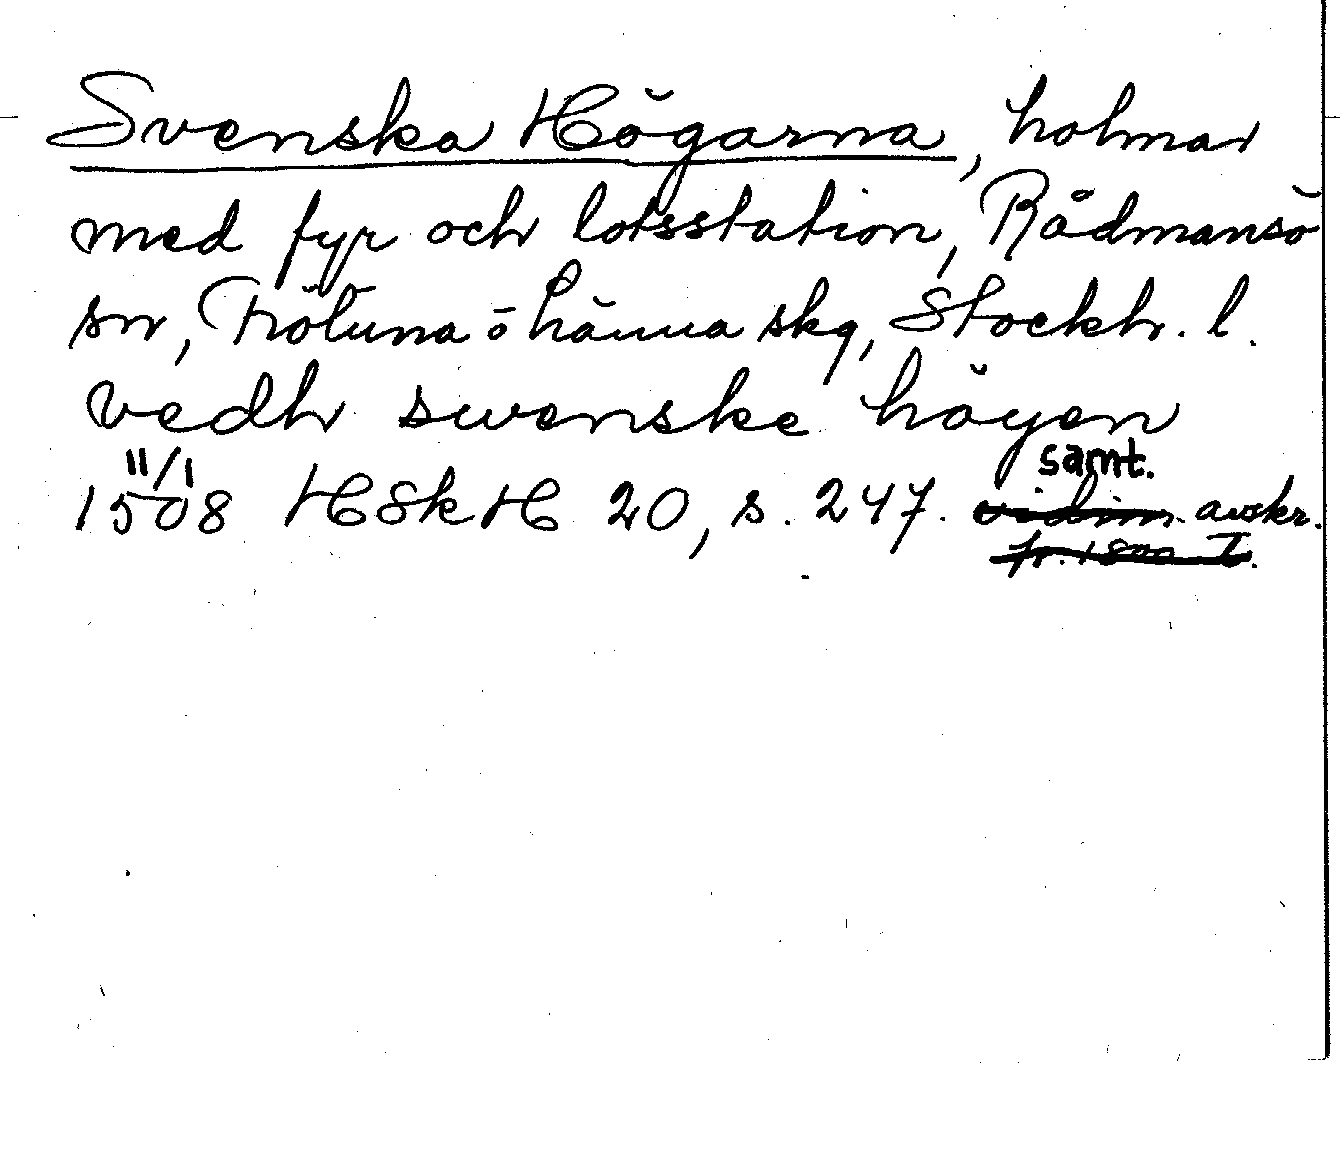 Svenska Högarna, holmar
med fyr och lotsstation, Rådmansö
sn, Frötuna o Länna skg, Stockh. l.
vedh swenske höyen
11/1 samt.
1508 HSkH 20, s. 247. vidim. avskr.
fr. 1500 T.